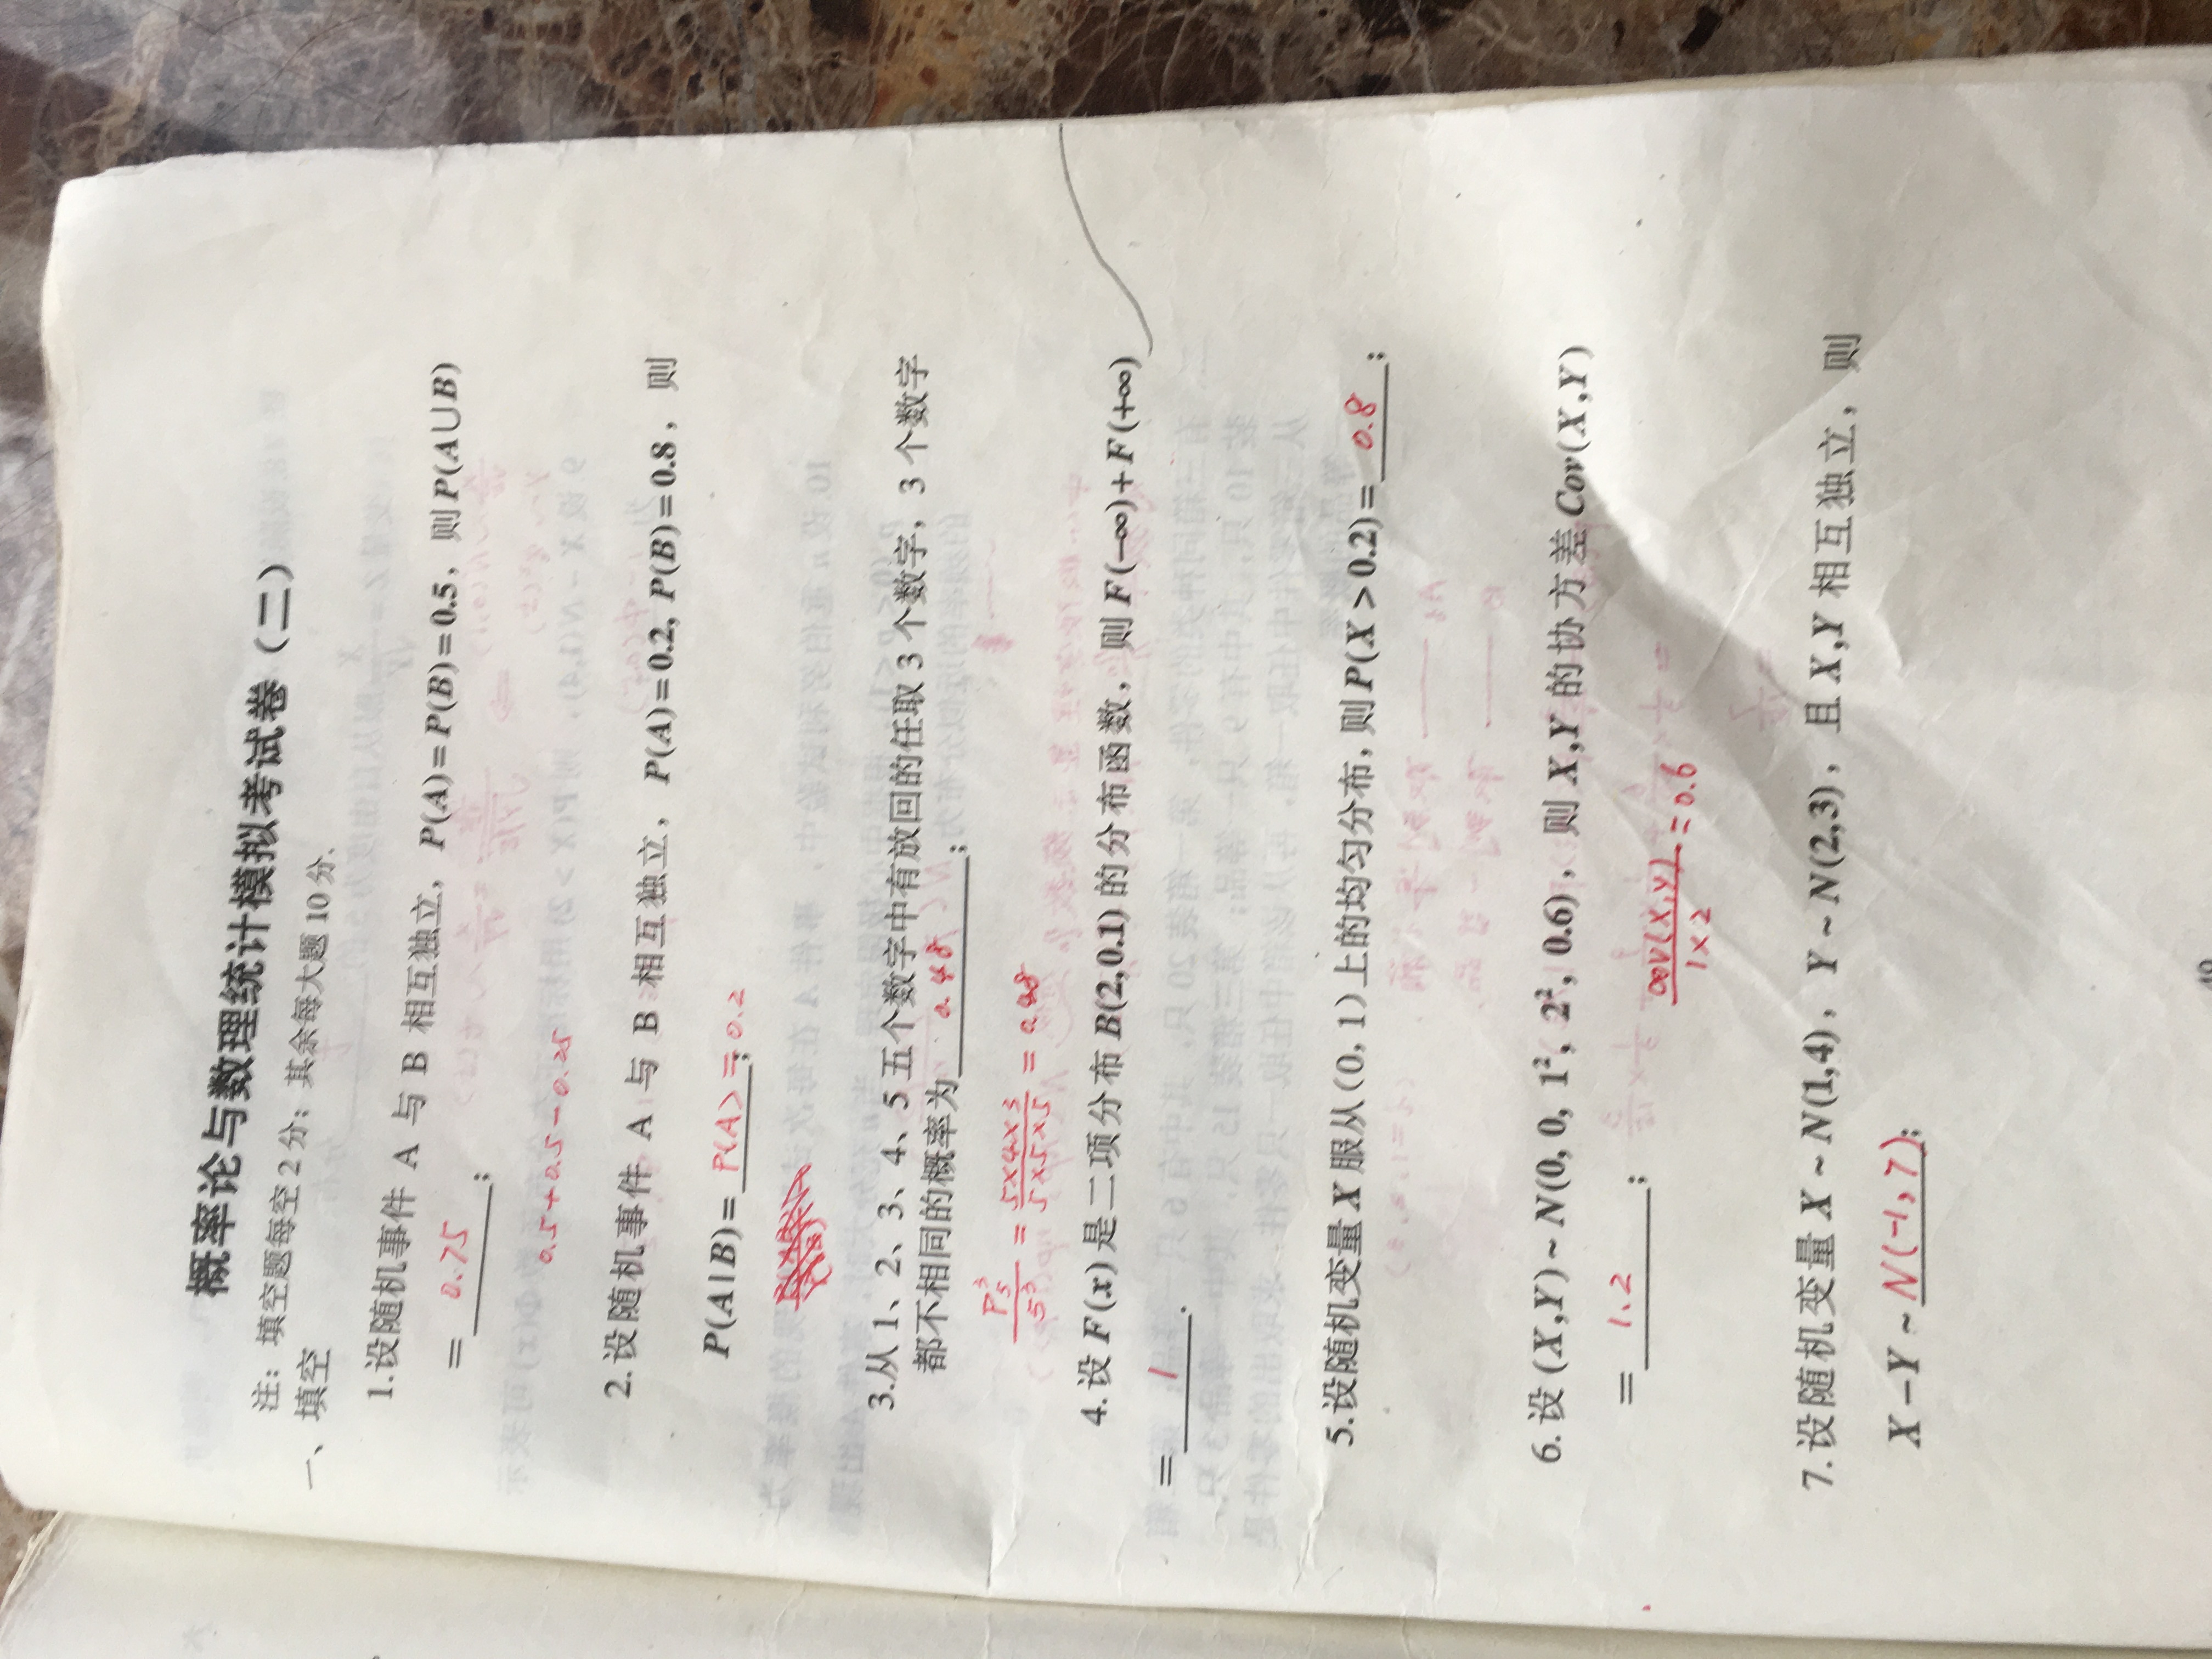 概率论与数理统计模拟考试卷（二）
注：填空题每空2分；其余每大题10分.
一、填空
1.设随机事件 A 与 B 相互独立，P(A)=P(B)=0.5，则P(A∪B)
=0.75；
0.5+0.5-0.25
2.设随机事件 A 与 B 相互独立，P(A)=0.2, P(B)=0.8，则
P(A|B)=P(A)=0.2；
3.从 1、2、3、4、5 五个数字中有放回的任取 3 个数字，3 个数字
都不相同的概率为0.48；
P₅³/5³ = 5×4×3/5×5×5 = 0.48
4.设 F(x) 是二项分布 B(2,0.1) 的分布函数，则 F(-∞)+F(+∞)
=1.
5.设随机变量 X 服从(0, 1)上的均匀分布，则P(X>0.2)=0.8；
6.设 (X,Y)~N(0, 0, 1², 2², 0.6)，则 X,Y 的协方差 Cov(X,Y)
=1.2；
cov(X,Y)/1×2=0.6
7.设随机变量 X~N(1,4)，Y~N(2,3)，且 X,Y 相互独立，则
X-Y~N(-1,7)；
49